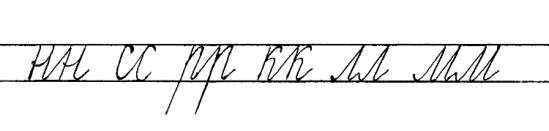 нн сс рр кк лл мм